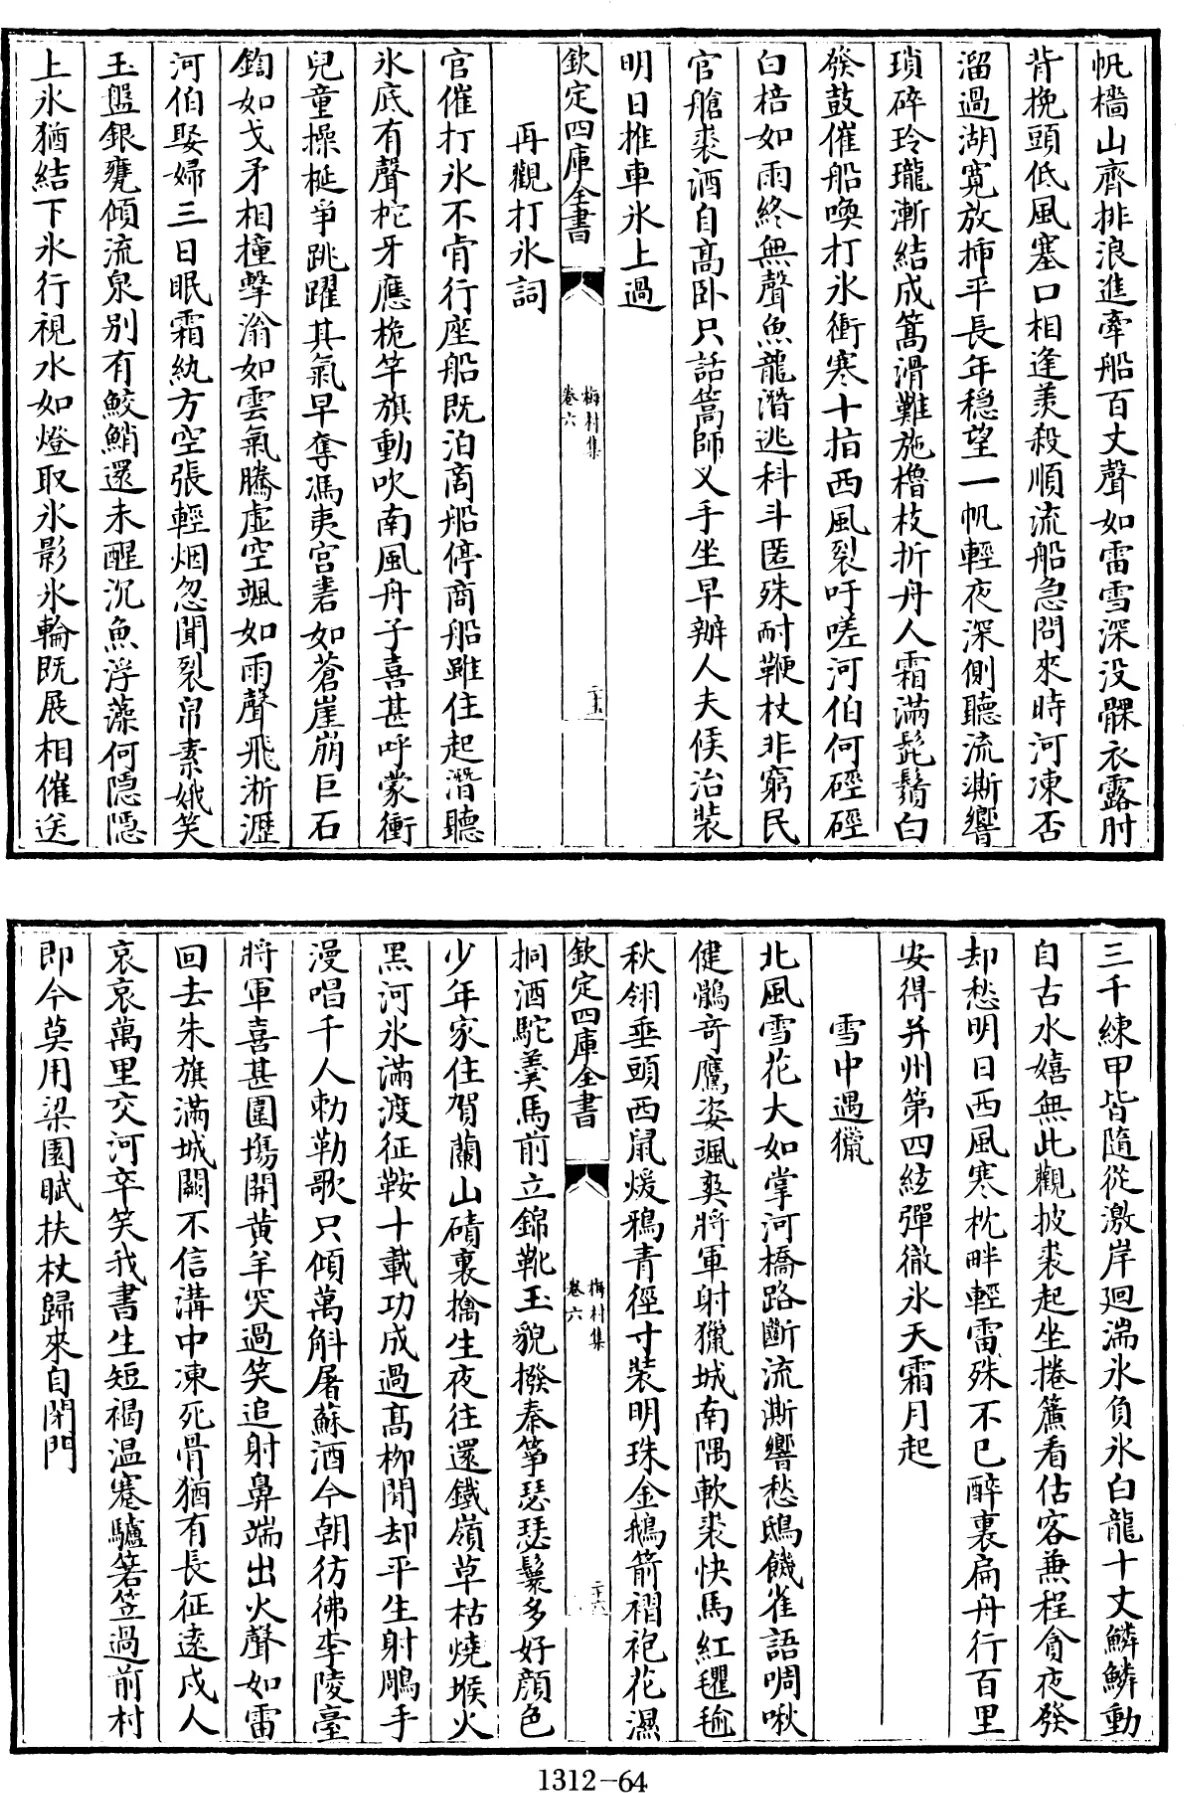 帆檣山齊排浪進牽船百丈聲如雷雪深没髁衣露肘
背挽頭低風塞口相逢羨殺順流船急問來時河凍否
溜過湖寛放揷平長年穏望一帆輕夜深側聽流澌響
瑣碎玲瓏漸結成篙滑難施櫓枝折舟人霜滿髭鬚白
發鼓催船喚打氷衝寒十指西風裂吁嗟河伯何硜硜
白棓如雨終無聲魚龍潛逃科斗匿殊耐鞭杖非窮民
官艙裘酒自高卧只話篙師叉手坐早辦人夫俟治装
明日推車氷上過
欽定四庫全書
梅村集
卷六
二十五
再觀打氷詞
官催打氷不肯行座船既泊商船停商船雖住起潛聽
氷底有聲柁牙應桅竿旗動吹南風舟子喜甚呼蒙衝
兒童操梃爭跳躍其氣早奪馮夷宫砉如蒼崖崩巨石
鍧如戈矛相撞擊滃如雲氣騰虚空颯如雨聲飛淅瀝
河伯娶婦三日眠霜紈方空張輕烟忽聞裂帛素娥笑
玉盤銀甕傾流泉别有鮫鮹還未醒沉魚浮藻何隠隠
上氷猶結下氷行視水如燈取氷影氷輪既展相催送
三千練甲皆隨從激岸廻湍氷負氷白龍十丈鱗鱗動
自古水嬉無此觀披裘起坐捲簾看估客兼程貪夜發
却愁明日西風寒枕畔輕雷殊不已醉裏扁舟行百里
安得并州第四絃彈徹氷天霜月起
雪中遇獵
北風雪花大如掌河橋路斷流澌響愁鴟饑雀語啁啾
健鶻奇鷹姿颯爽將軍射獵城南隅軟裘快馬紅氍毹
秋翎垂頭西鼠煖鴉青徑寸装明珠金鵝箭褶袍花濕
欽定四庫全書
梅村集
卷六
二十六
挏酒駝羮馬前立錦靴玉貌撥秦箏瑟瑟鬟多好顔色
少年家住賀蘭山磧裏擒生夜往還鐵嶺草枯燒堠火
黑河氷滿渡征鞍十載功成過高栁閒却平生射鵰手
漫唱千人勑勒歌只傾萬斛屠蘇酒今朝彷彿李陵臺
將軍喜甚圍塲開黄羊突過笑追射鼻端出火聲如雷
回去朱旗滿城闕不信溝中凍死骨猶有長征逺戍人
哀哀萬里交河卒笑我書生短褐温蹇驢箬笠過前村
即今莫用梁園賦扶杖歸來自閉門
1312-64